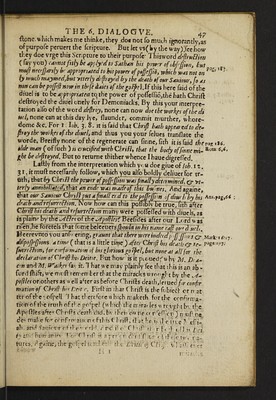 THE 6. DIALOGVE. 47
stone. which makes me thinke, they doe not so much ignorantly, as
of purpose peruert the scripture. But let vs (by the way) see how
they doe vrge this Scripture to their purpose This word destruction
(say you) cannot fitly be applyed to Sathan his power of obsession, but
must necessarily be appropriated to his power of possession, which was not on
ly much maymed, but vtterly destroyed by the death of our Sauiour, so as
now can be possest none in these daies of the gospel. If this heere said of the
diuel is to be appropriated to the power of possessiō, thē hath Christ
destroyed the diuel onely for Demoniacks. By this your interpre-
tation also of the word destroy, none can now doe the workes of the di
uel, none can at this day lye, slaunder, commit murther, whore-
dome &c. For 1. Ioh. 3. 8. it is said that Christ hath appeared to de-
stroy the workes of the diuel, and thus you your selues translate the
words, Breifly none of the regenerate can sinne, sith it is said the
olde man (of such) is crucified with Christ, that the body of sinne mi-
ght be destroyed, But to returne thither whence I haue digressed.
Lastly from the interpretation which you doe giue of Ioh. 12.
31, it must necessarily follow, which you also boldly deliuer for tr-
uth, that by Christ the power of possession was finally determined, & vt-
terly annihilated, that an ende was made of this busines, And againe,
that our Sauiour Christ put a finall end to the possession of diuels by his
death and resurrection, Now how can this possibly be true, sith after
Christ his death and resurrection many were possessed with diuels, as
is plaine by the actes of the Apostles: Besides after our Lord was
risen, he foretels that some beleeuers should in his name cast out diuels,
Howeuer you and graunt that there were indeed
dispossessions a time (that is a little time) after Christ his death & re-
surrection, for confirmation of his glorious gospel, but now at all for the
declaration of Christ his Deitie. But how is it poued by M. Dea-
con and M. Walker say it. That we may plainly see that this is an ab-
surd shift, we must remember that the miracles wrought by the A-
postles or others as well after as before Christs death, serued for confir-
mation of Christ his Deitie. First in that Christ is the subiect or matter
of the gospell. That therefore which maketh for the confirmation
of the truth of the gospel (which the miracles wrought by the
Apostles after Christs death did, by
pag, 187.
pag 186.
Rom, 6,6.
Mark, 16:17.